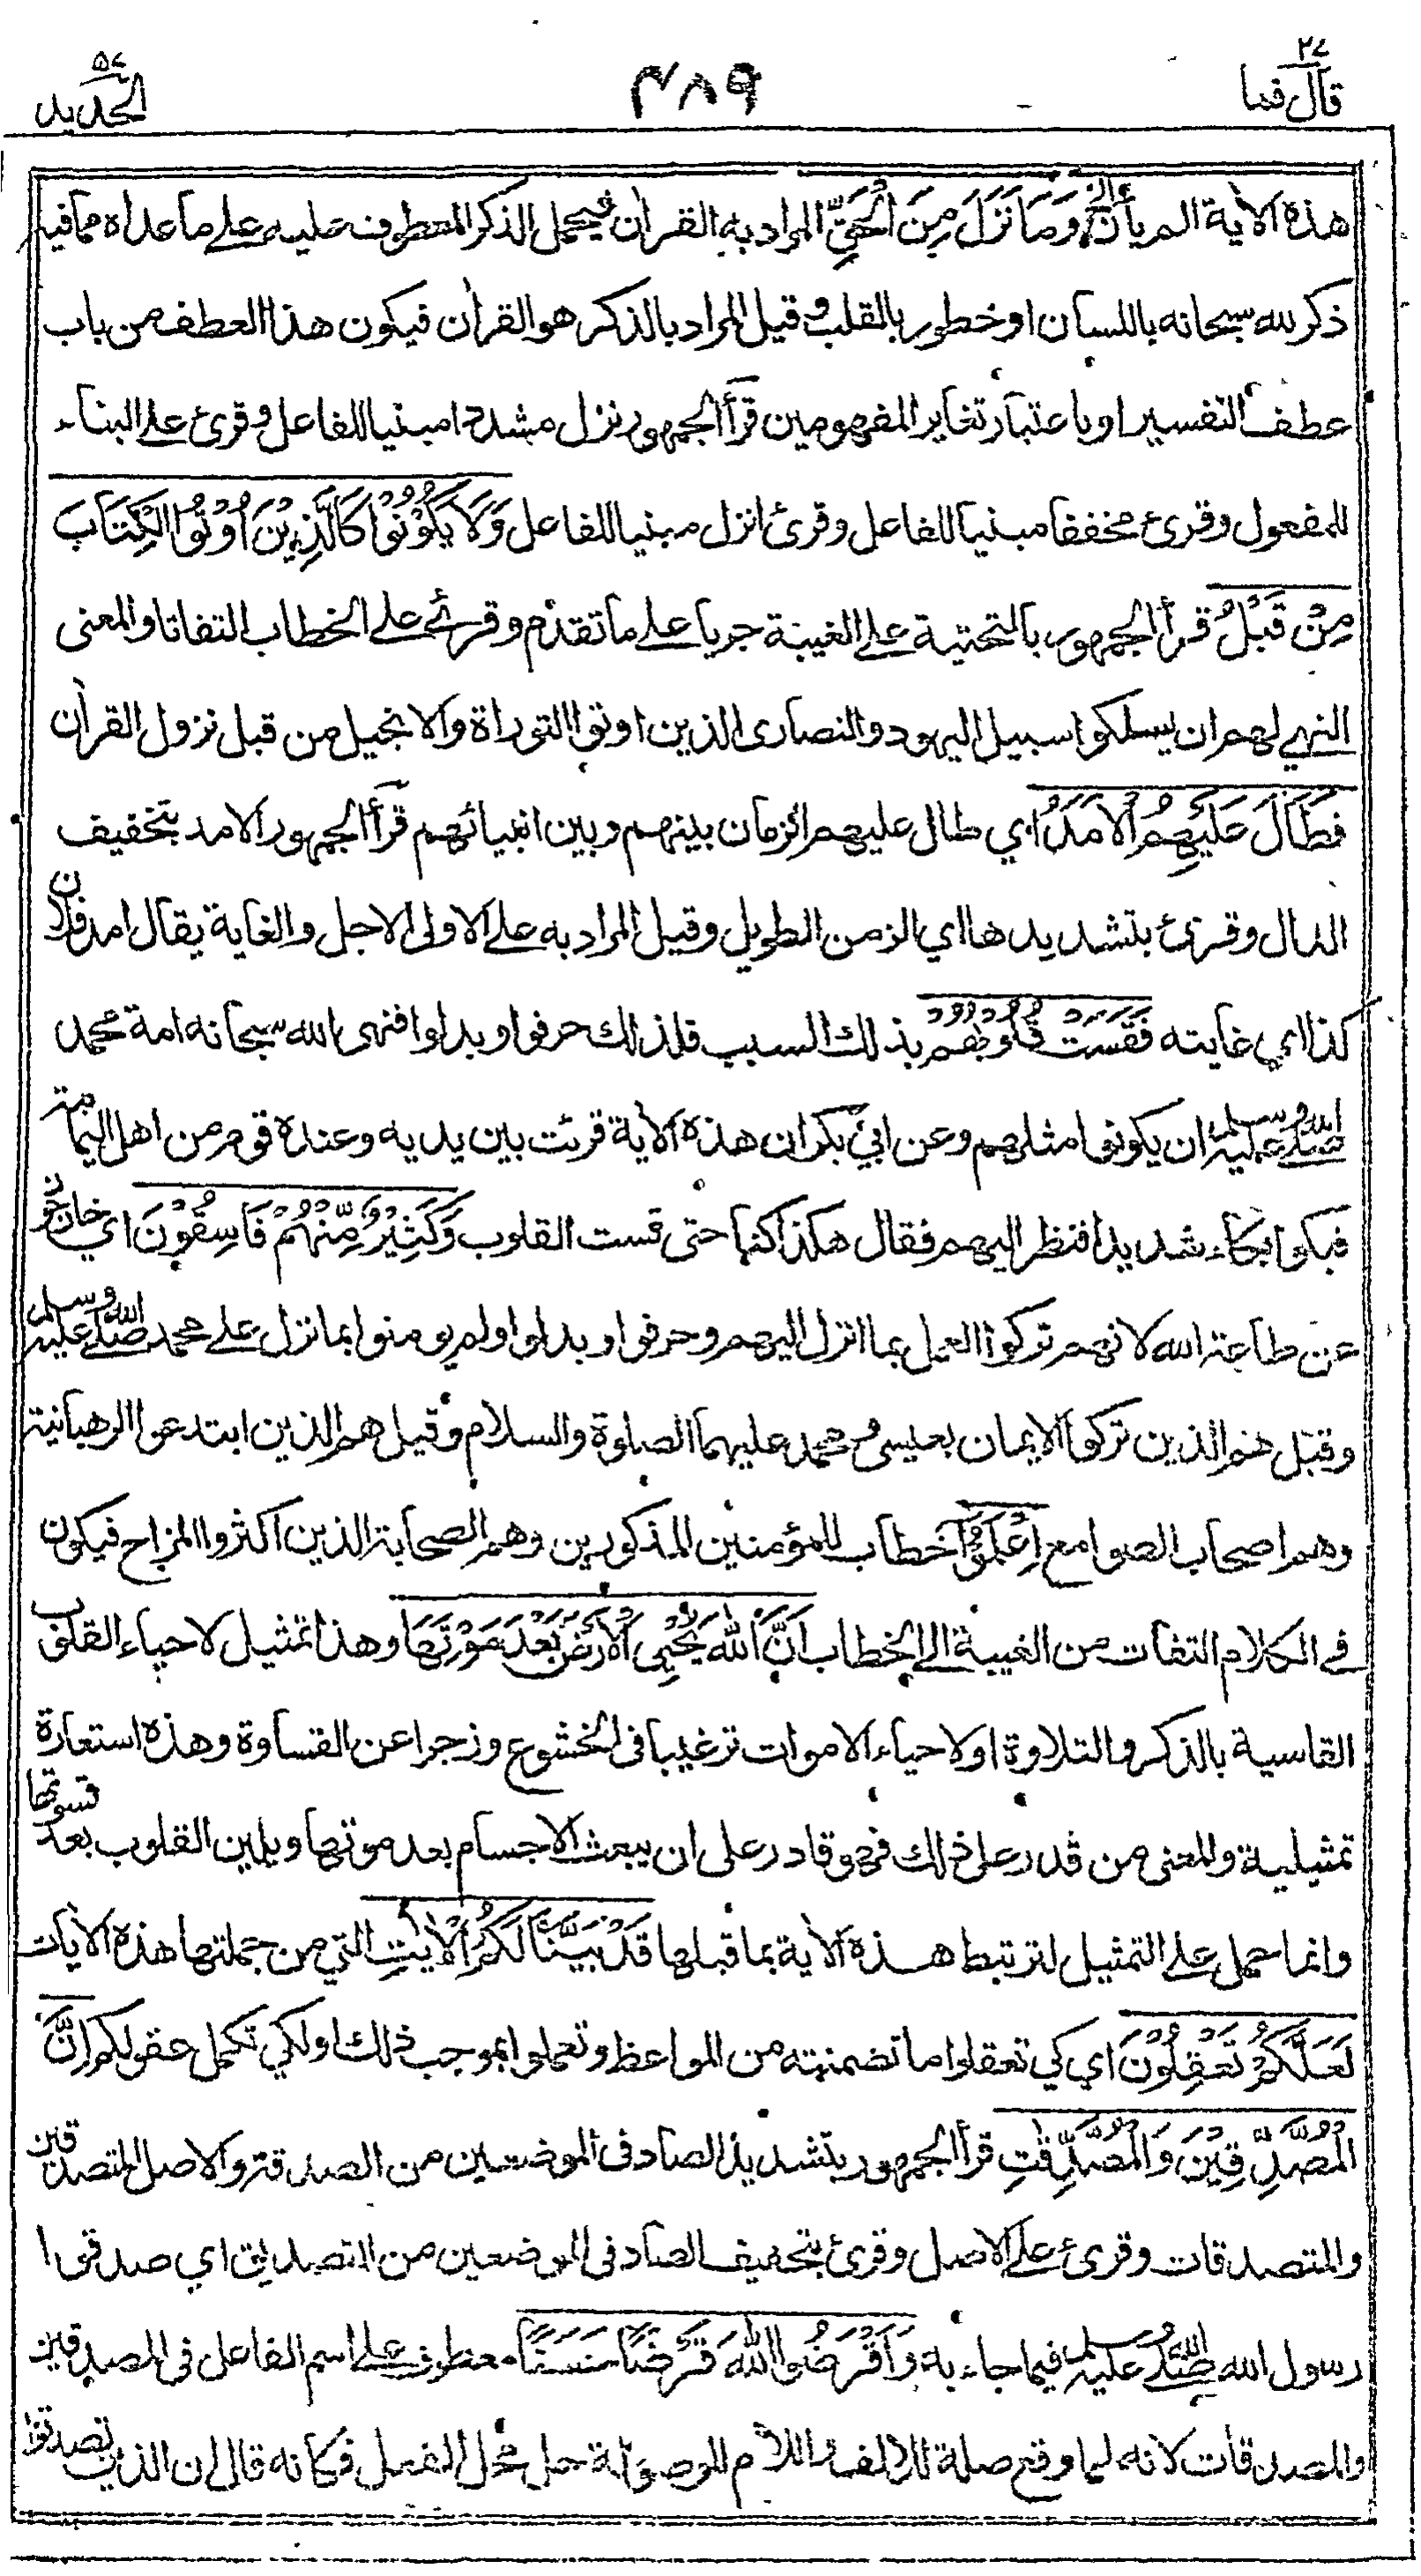 قال فما ٢٧
٤٨٩
الحديد ٥٧
هذه الاٰية الم يأن الخ وَمَا نَزَلَ مِنَ الْحَقِّ المراد به القراٰن فيحمل الذكر المعطوف عليه على ما عداه مما فيه
ذكر لله سبحانه باللسان او خطور بالقلب وقيل المراد بالذكر هو القراٰن فيكون هذا العطف من باب
عطف التفسير او باعتبار تغاير المفهومين قرأ الجمهور نزل مشددا مبنيا للفاعل وقرئ على البناء
للمفعول وقرئ مخففا مبنيا للفاعل وقرئ انزل مبنيا للفاعل وَلَا يَكُوْنُوْا كَالَّذِيْنَ اُوْتُوا الْكِتَابَ
مِنْ قَبْلُ قرأ الجمهور بالتحتية على الغيبة جريا على ما تقدم وقرئ على الخطاب التفاتا والمعنى
النهي لهم ان يسلكوا سبيل اليهود والنصارى الذين اوتوا التوراة والانجيل من قبل نزول القراٰن
فَطَالَ عَلَيْهِمُ الْاَمَدُ اي طال عليهم الزمان بينهم وبين انبيائهم قرأ الجمهور الامد بتخفيف
الدال وقرئ بتشديدها اي الزمن الطويل وقيل المراد به على الاولى الاجل والغاية يقال امد فلان
كذا اي غايته فَقَسَتْ قُلُوْبُهُمْ بذلك السبب فلذلك حرفوا وبدلوا فنهى الله سبحانه امة محمد
صلى الله عليه وسلم ان يكونوا مثلهم وعن ابي بكر ان هذه الاٰية قرئت بين يديه وعنده قوم من اهل اليمامة
فبكوا بكاء شديدا فنظر اليهم فقال هكذا كنا حتى قست القلوب وَكَثِيْرٌ مِّنْهُمْ فَاسِقُوْنَ اي خارجون
عن طاعة الله لانهم تركوا العمل بما انزل اليهم وحرفوا وبدلوا ولم يومنوا بما نزل على محمد صلى الله عليه وسلم
وقيل هم الذين تركوا الايمان بعيسى ومحمد عليهما الصلوة والسلام وقيل هم الذين ابتدعوا الرهبانية
وهم اصحاب الصوامع اِعْلَمُوْا خطاب للمؤمنين المذكورين وهم الصحابة الذين اكثروا المزاح فيكون
في الكلام التفات من الغيبة الى الخطاب اَنَّ اللهَ يُحْيِي الْاَرْضَ بَعْدَ مَوْتِهَا وهذا تمثيل لاحياء القلوب
القاسية بالذكر والتلاوة او لاحياء الاموات ترغيبا في الخشوع وزجرا عن القساوة وهذه استعارة
تمثيلية والمعنى من قدر على ذلك فهو قادر على ان يبعث الاجسام بعد موتها ويلين القلوب بعد قسوتها
وانما حمل على التمثيل لترتبط هذه الاٰية بما قبلها قَدْ بَيَّنَّا لَكُمُ الْاٰيٰتِ التي من جملتها هذه الاٰيات
لَعَلَّكُمْ تَعْقِلُوْنَ اي كي تعقلوا ما تضمنته من المواعظ وتعملوا بموجب ذلك او لكي تكمل عقولكم اِنَّ
الْمُصَّدِّقِيْنَ وَالْمُصَّدِّقٰتِ قرأ الجمهور بتشديد الصاد في الموضعين من الصدقة والاصل المتصدقين
والمتصدقات وقرئ على الاصل وقرئ بتخفيف الصاد في الموضعين من التصديق اي صدقوا
رسول الله صلى الله عليه وسلم فيما جاء به وَاَقْرَضُوا اللهَ قَرْضًا حَسَنًا معطوف على اسم الفاعل في المصدقين
والمصدقات لانه لما وقع صلة للالف واللام الموصولة حل محل الفعل فكانه قال ان الذين تصدقوا